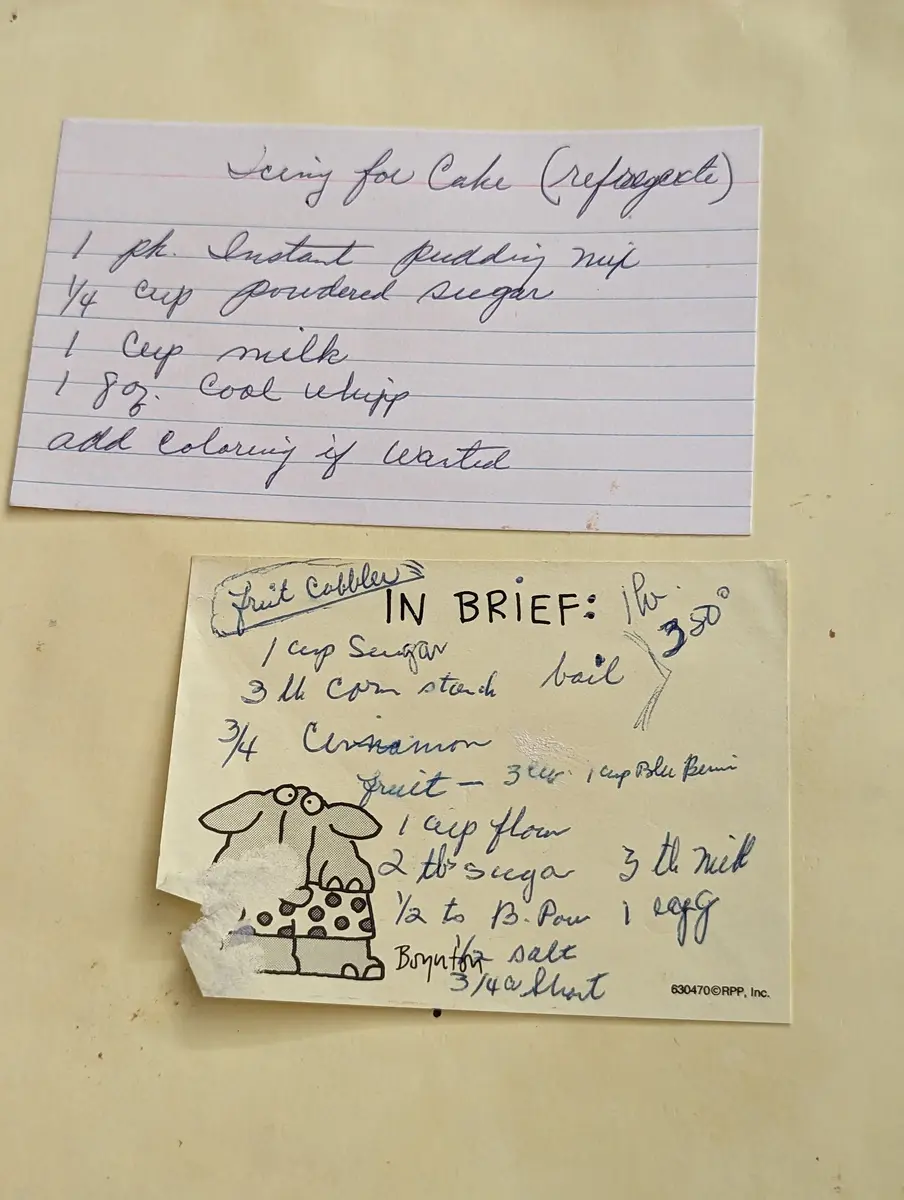 Icing for Cake (refregexte)
1 pk. Instant pudding mix
1/4 cup powdered sugar
1 Cup milk
1 8oz. Cool Whipp
add coloring if wanted
fruit Cobbler
IN BRIEF:
1 hr. 350°
1 cup Sugar
3 tb Corn starch boil
3/4 Cinnamon
fruit – 3 cup 1 cup Blu Berri
1 cup flour
2 tbs sugar 3 tb milk
1/2 to B. Pow 1 egg
Boynton
1/2 salt
3/4 Short
630470©RPP, Inc.